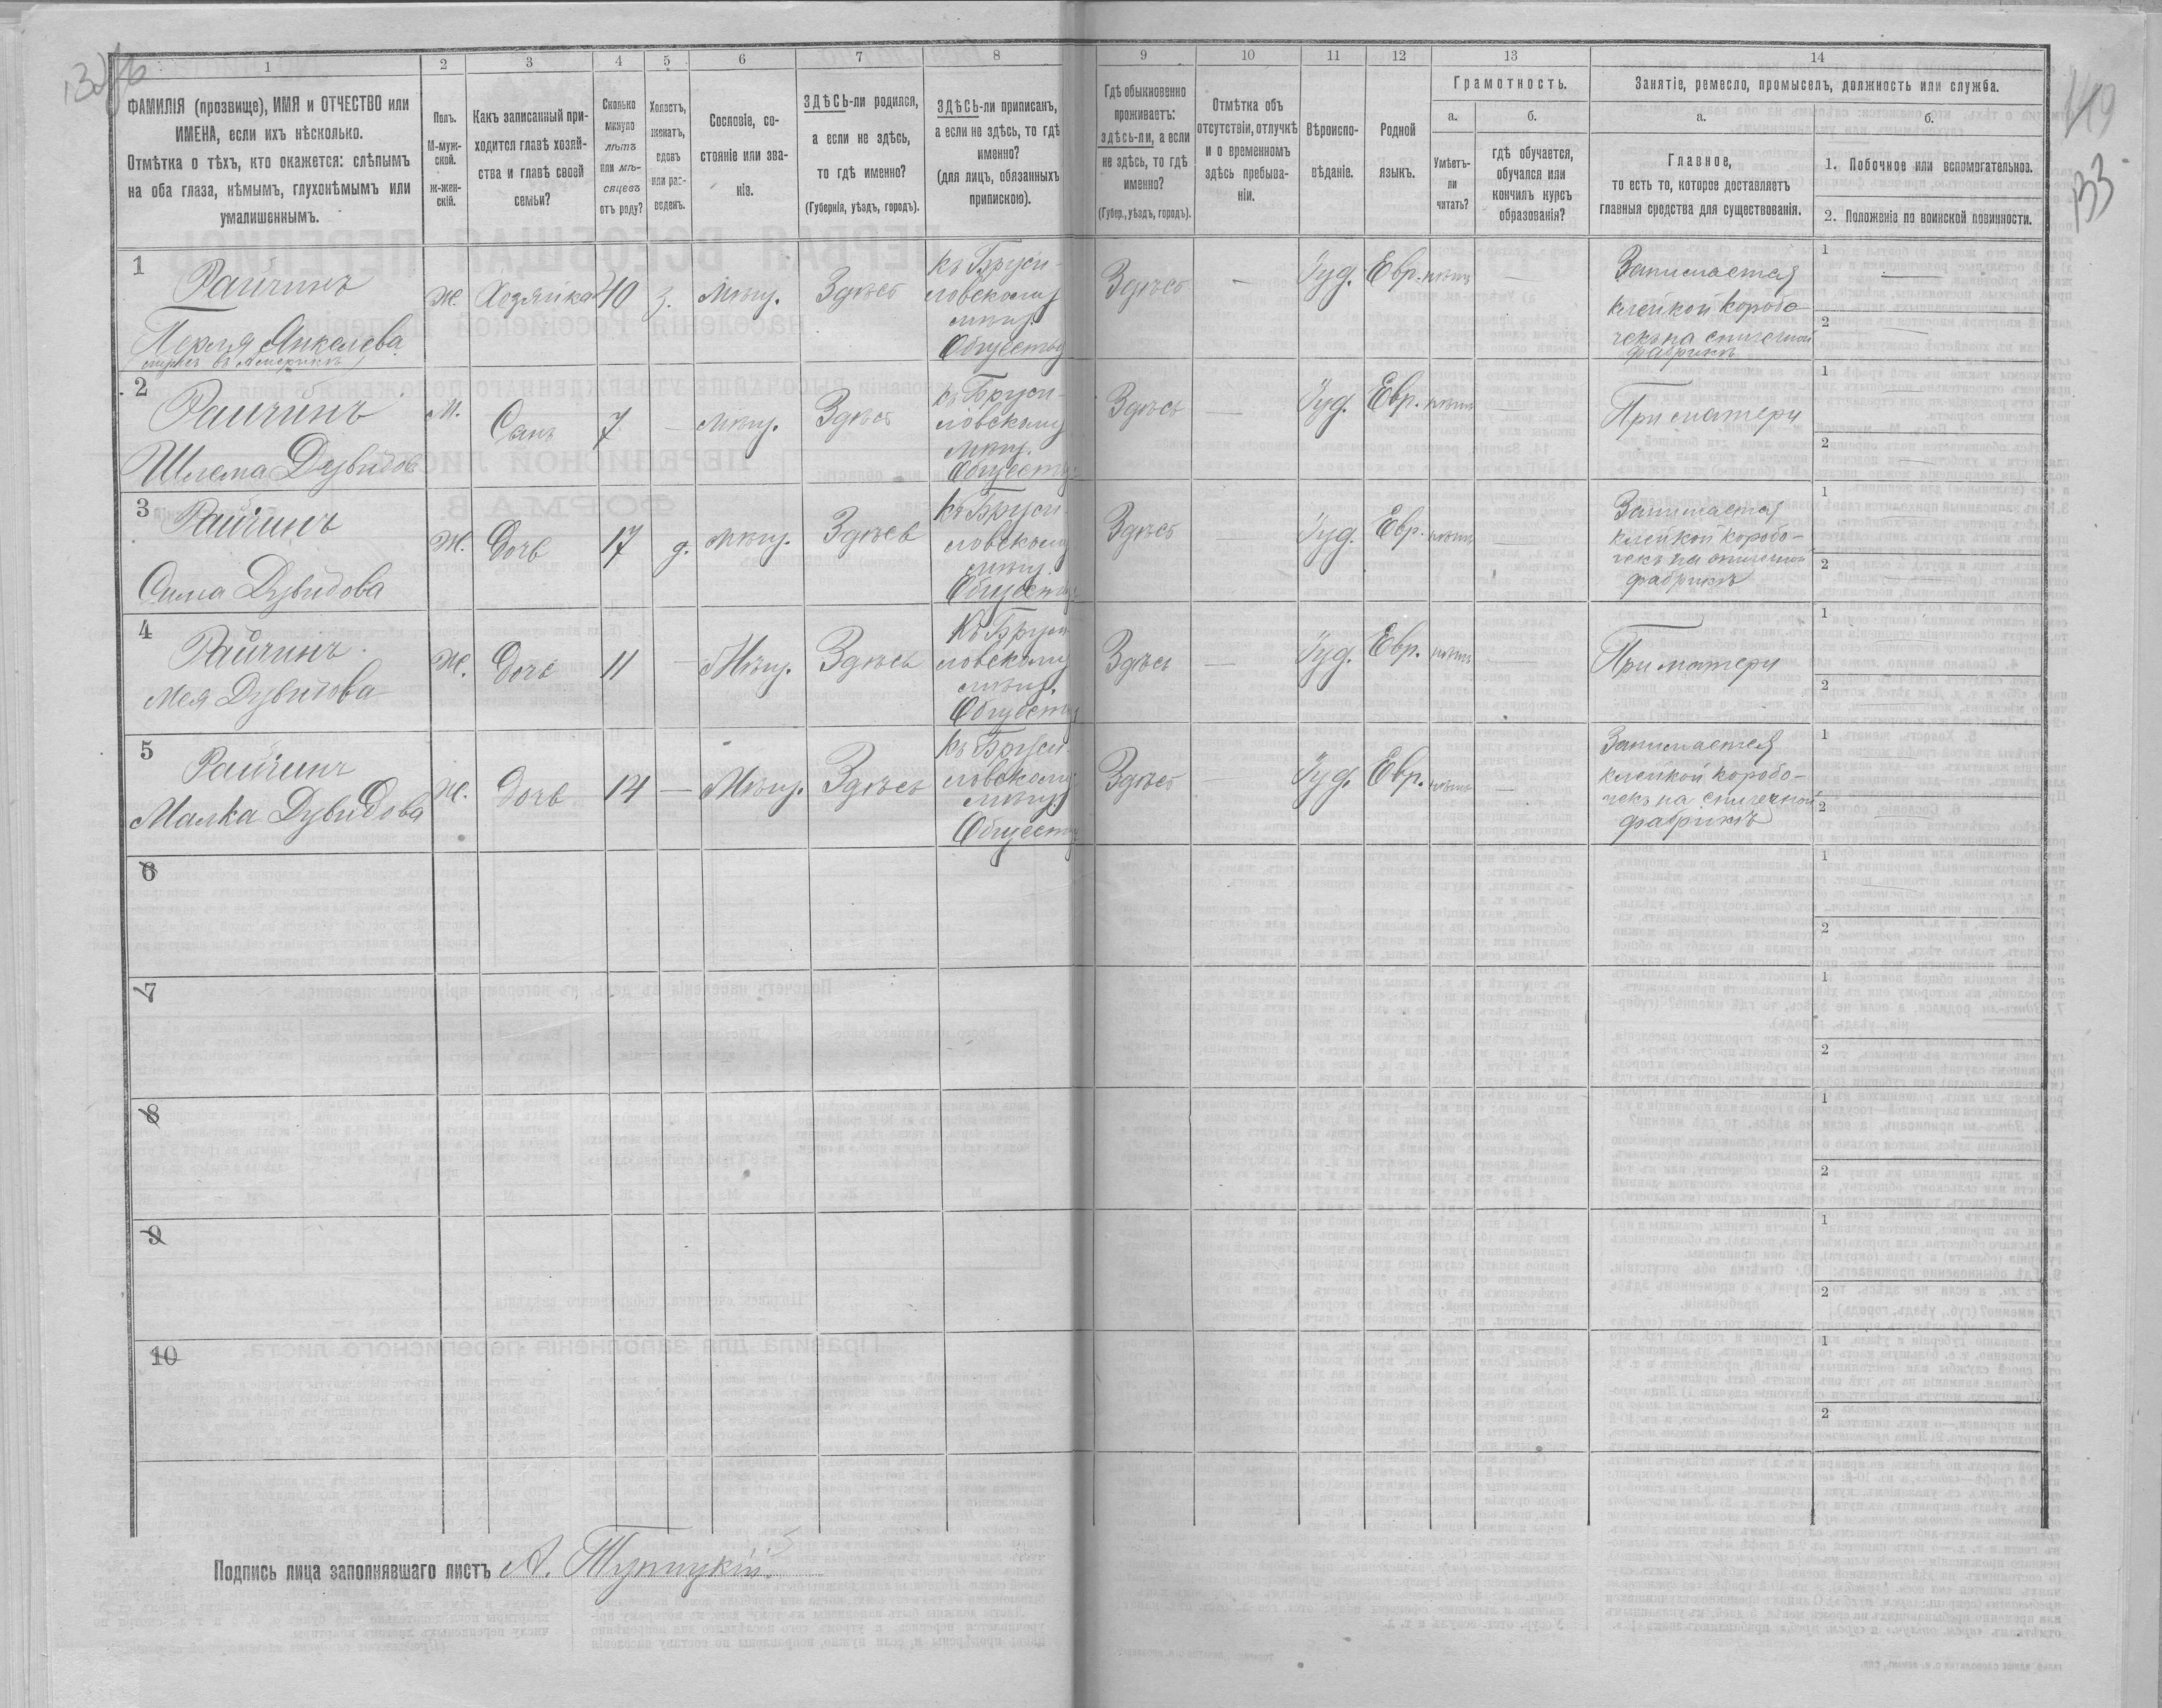 1
2
3
4
5
6
7
8
9
10
11
12
13
14
ФАМИЛІЯ (прозвище), ИМЯ и ОТЧЕСТВО или
ИМЕНА, если ихъ нѣсколько.
Отмѣтка о тѣхъ, кто окажется: слѣпымъ
на оба глаза, нѣмымъ, глухонѣмымъ или
умалишеннымъ.
Полъ.
М-муж-
ской.
Ж-жен-
скій.
Какъ записанный при-
ходится главѣ хозяй-
ства и главѣ своей
семьи?
Сколько
минуло
лѣтъ
или мѣ-
сяцевъ
отъ роду?
Холостъ,
женатъ,
вдовъ
или раз-
веденъ.
Сословіе, со-
стояніе или зва-
ніе.
ЗДѢСЬ-ли родился,
а если не здѣсь,
то гдѣ именно?
(Губернія, уѣздъ, городъ).
ЗДѢСЬ-ли приписанъ,
а если не здѣсь, то гдѣ
именно?
(для лицъ, обязанныхъ
припискою).
Гдѣ обыкновенно
проживаетъ:
здѣсь-ли, а если
не здѣсь, то гдѣ
именно?
(Губер., уѣздъ, городъ).
Отмѣтка объ
отсутствіи, отлучкѣ
и о временномъ
здѣсь пребыва-
ніи.
Вѣроиспо-
вѣданіе.
Родной
языкъ.
Грамотность.
а.
Умѣетъ-
ли
читать?
б.
гдѣ обучается,
обучался или
кончилъ курсъ
образованія?
Занятіе, ремесло, промыселъ, должность или служба.
а.
Главное,
то есть то, которое доставляетъ
главныя средства для существованія.
б.
1. Побочное или вспомогательное.
2. Положеніе по воинской повинности.
119
133
1
Райчинъ
Перля Янкелева
мужъ въ Америкѣ
ж.
Хозяйка
40
з.
Мѣщ.
Здѣсь
къ Бруси-
ловскому
мѣщ.
Обществу
Здѣсь
—
Іуд.
Евр.
нѣтъ
—
Занимается
клейкой коробо-
чекъ на спичечной
фабрикѣ
1
2
2
Райчинъ
Шлема Дувидовъ
М.
Сынъ
7
—
Мѣщ.
Здѣсь
къ Бруси-
ловскому
мѣщ.
Обществу
Здѣсь
—
Іуд.
Евр.
нѣтъ
—
При матери
1
2
3
Райчинъ
Сима Дувидова
Ж.
Дочь
17
д.
Мѣщ.
Здѣсь
къ Бруси-
ловскому
мѣщ.
Обществу
Здѣсь
—
Іуд.
Евр.
нѣтъ
—
Занимается
клейкой коробо-
чекъ на спичечной
фабрикѣ
1
2
4
Райчинъ
Мея Дувидова
Ж.
Дочь
11
—
Мѣщ.
Здѣсь
Къ Бруси-
ловскому
мѣщ.
Обществу
Здѣсь
—
Іуд.
Евр.
нѣтъ
—
При матери
1
2
5
Райчинъ
Малка Дувидова
Ж.
Дочь
14
—
Мѣщ.
Здѣсь
къ Бруси-
ловскому
мѣщ.
Обществу
Здѣсь
—
Іуд.
Евр.
нѣтъ
—
Занимается
клейкой коробо-
чекъ на спичечной
фабрикѣ
1
2
6
1
2
7
1
2
8
1
2
9
1
2
10
1
2
Подпись лица заполнявшаго листъ А. Тупицкій